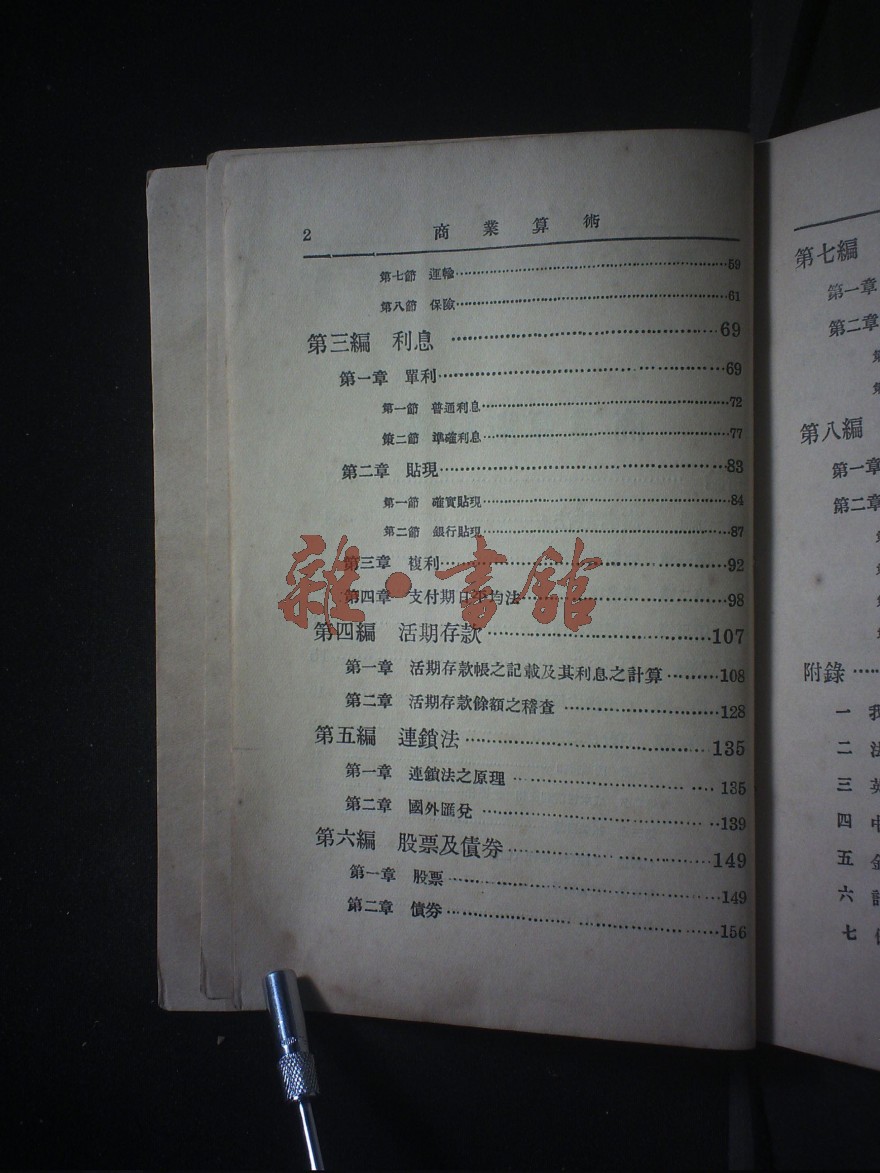 2 商業算術
第七節 運輸 59
第八節 保險 61
第三編 利息 69
第一章 單利 69
第一節 普通利息 72
第二節 準確利息 77
第二章 貼現 83
第一節 確實貼現 84
第二節 銀行貼現 87
第三章 複利 92
第四章 支付期日平均法 98
第四編 活期存款 107
第一章 活期存款帳之記載及其利息之計算 108
第二章 活期存款餘額之稽查 128
第五編 連鎖法 135
第一章 連鎖法之原理 135
第二章 國外匯兌 139
第六編 股票及債券 149
第一章 股票 149
第二章 債券 156
雜·書館
第七編
第一章
第二章
第八編
第一章
第二章
附錄
一 我
二 法
三 英
四
五 金
六
七